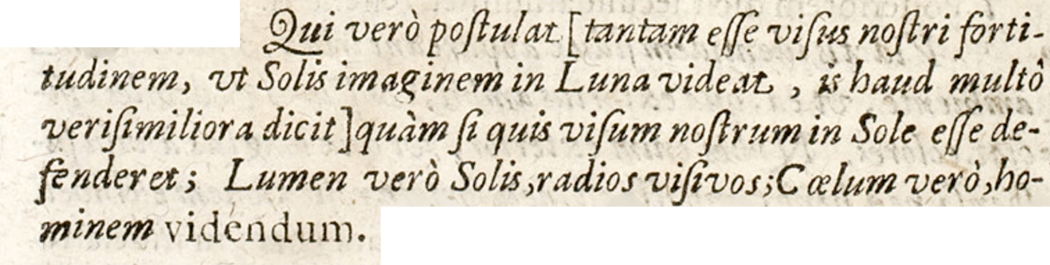 Qui verò poſtulat [tantam eſſe viſus noſtri forti-
tudinem, vt Solis imaginem in Luna videat , is haud multò
veriſimiliora dicit]quàm ſi quis viſum noſtrum in Sole eſſe de-
fenderet; Lumen verò Solis,radios viſivos;Cœlum verò,ho-
minem videndum.